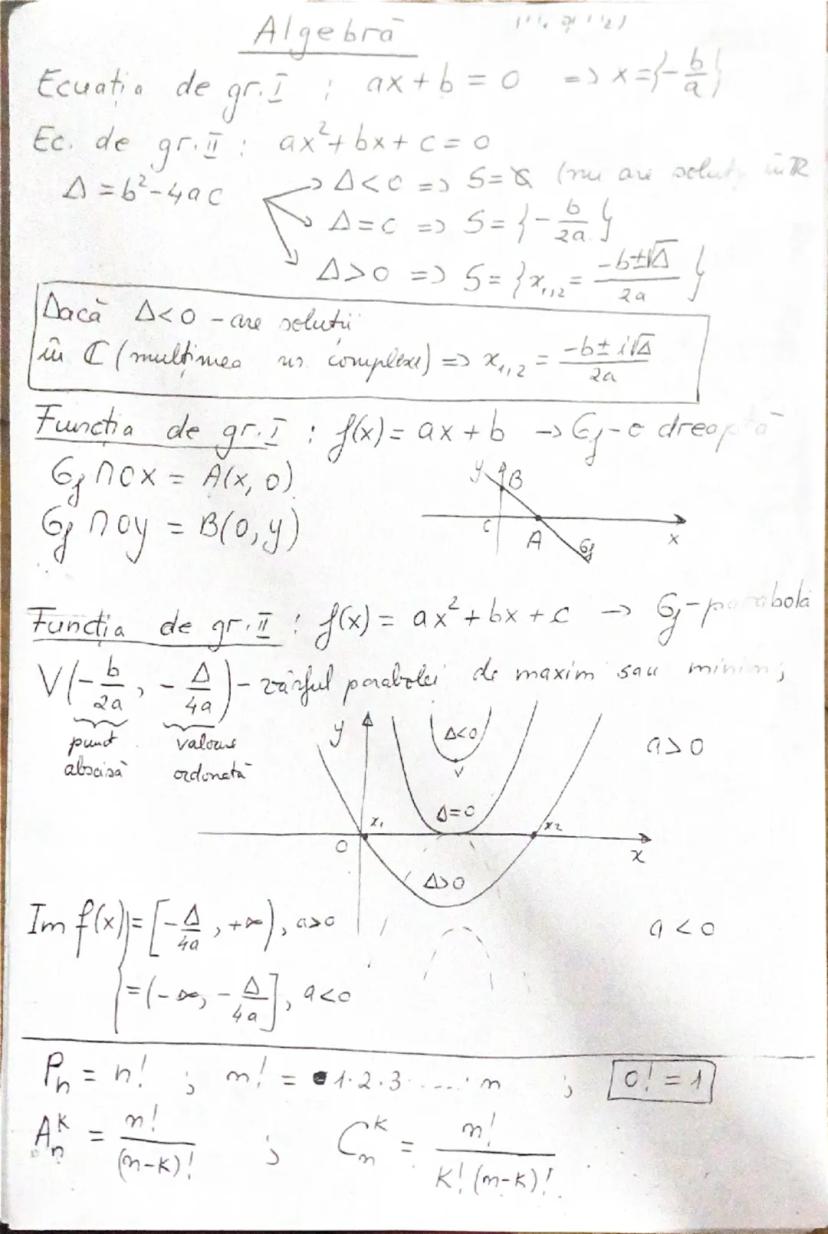 Algebră
Ecuația de gr. I : ax + b = 0 => x = {-b/a}
Ec. de gr. II : ax² + bx + c = 0
Δ = b² - 4ac
→ Δ < 0 => S = ∅ (nu are soluț în ℝ
→ Δ = 0 => S = {-b/2a}
→ Δ > 0 => S = {x₁,₂ = (-b±√Δ)/2a}
Dacă Δ < 0 - are soluții
în ℂ (mulțimea nr complexe) => x₁,₂ = (-b ± i√Δ)/2a
Funcția de gr. I : f(x) = ax + b → Gf - o dreaptă
Gf ∩ Ox = A(x, 0)
Gf ∩ Oy = B(0, y)
y B
O A Gf x
Funcția de gr. II : f(x) = ax² + bx + c → Gf - parabolă
V(-b/2a, -Δ/4a) - vârful parabolei de maxim sau minim;
punct abscisă
valoare ordonată
y Δ<0 a > 0
V
x₁ Δ=0 x₂
O x
Δ>0
Im f(x) = [-Δ/4a, +∞), a>0
a < 0
= (-∞, -Δ/4a], a<0
Pn = n! ; n! = 1·2·3·....·n ; 0! = 1
Aₙᵏ = n!/(n-k)! ; Cₙᵏ = n!/(k!(n-k)!)